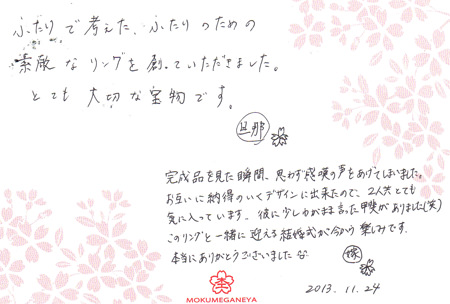 ふたりで考えた、ふたりのための
素敵なリングを創っていただきました。
とても大切な宝物です。
旦那
完成品を見た瞬間、思わず感嘆の声をあげてしまいました。
お互いに納得のいくデザインに出来たので、2人共とても
気に入っています。彼に少しわがまま言った甲斐がありました(笑)
このリングと一緒に迎える結婚式が今から楽しみです。
本当にありがとうございました
嫁
2013.11.24
MOKUMEGANEYA